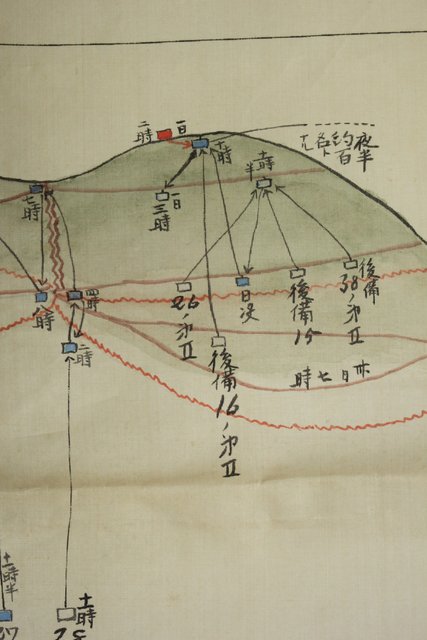 一日
二時
夜半
約百
各ト
十時
十二時
半
一日
三時
七時
八時
四時
二時
26ノ第II
日没
後備
15
後備
38ノ第II
後備
16ノ第II
卅日七時
十一時半
37
十一時
28